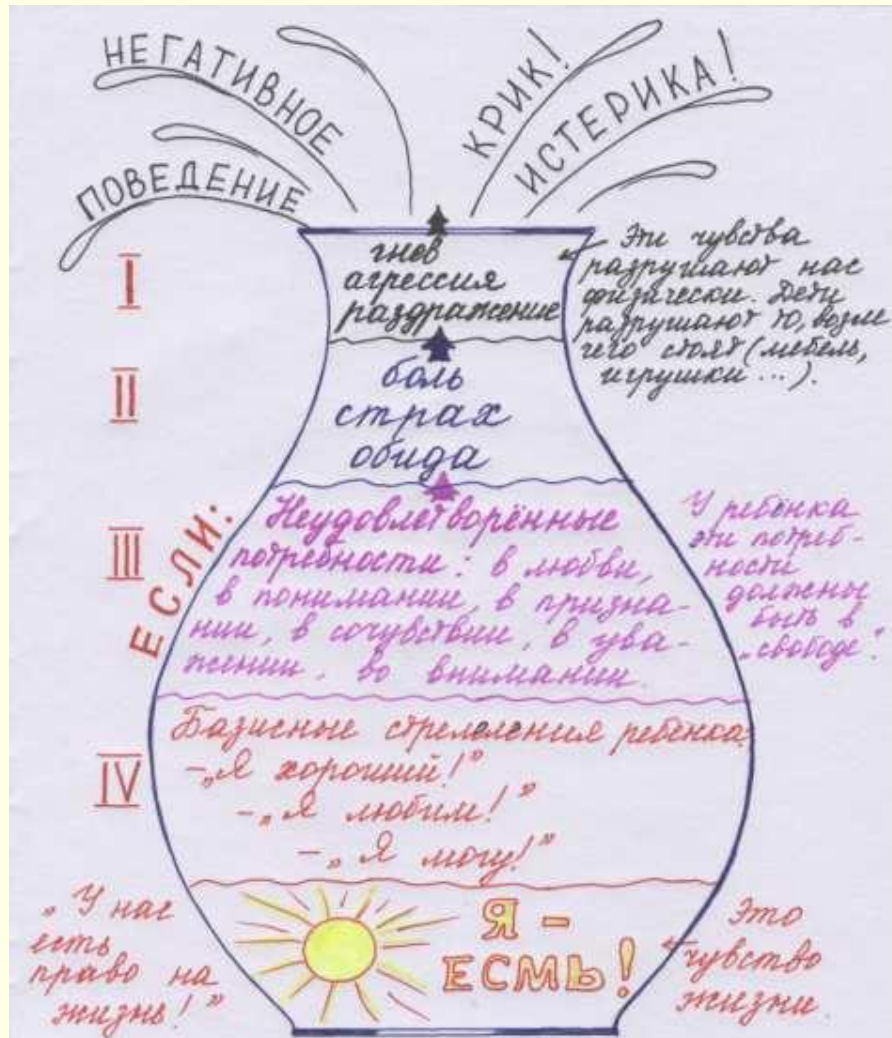 НЕГАТИВНОЕ
ПОВЕДЕНИЕ
КРИК!
ИСТЕРИКА!
I
гнев
агрессия
раздражение
Эти чувства
разрушают нас
физически. Дети
разрушают то, возле
чего стоят (мебель,
игрушки ...).
II
боль
страх
обида
ЕСЛИ:
III
Неудовлетворённые
потребности: в любви,
в понимании, в призна-
нии, в сочувствии, в ува-
жении, во внимании.
У ребёнка
эти потреб-
ности
должны
быть в
"свободе".
IV
Базисные стремления ребёнка:
-„Я хороший!"
-„Я любим!"
-„Я могу!"
„У нас
есть
право на
жизнь!"
Я -
ЕСМЬ!
Это
чувство
жизни.